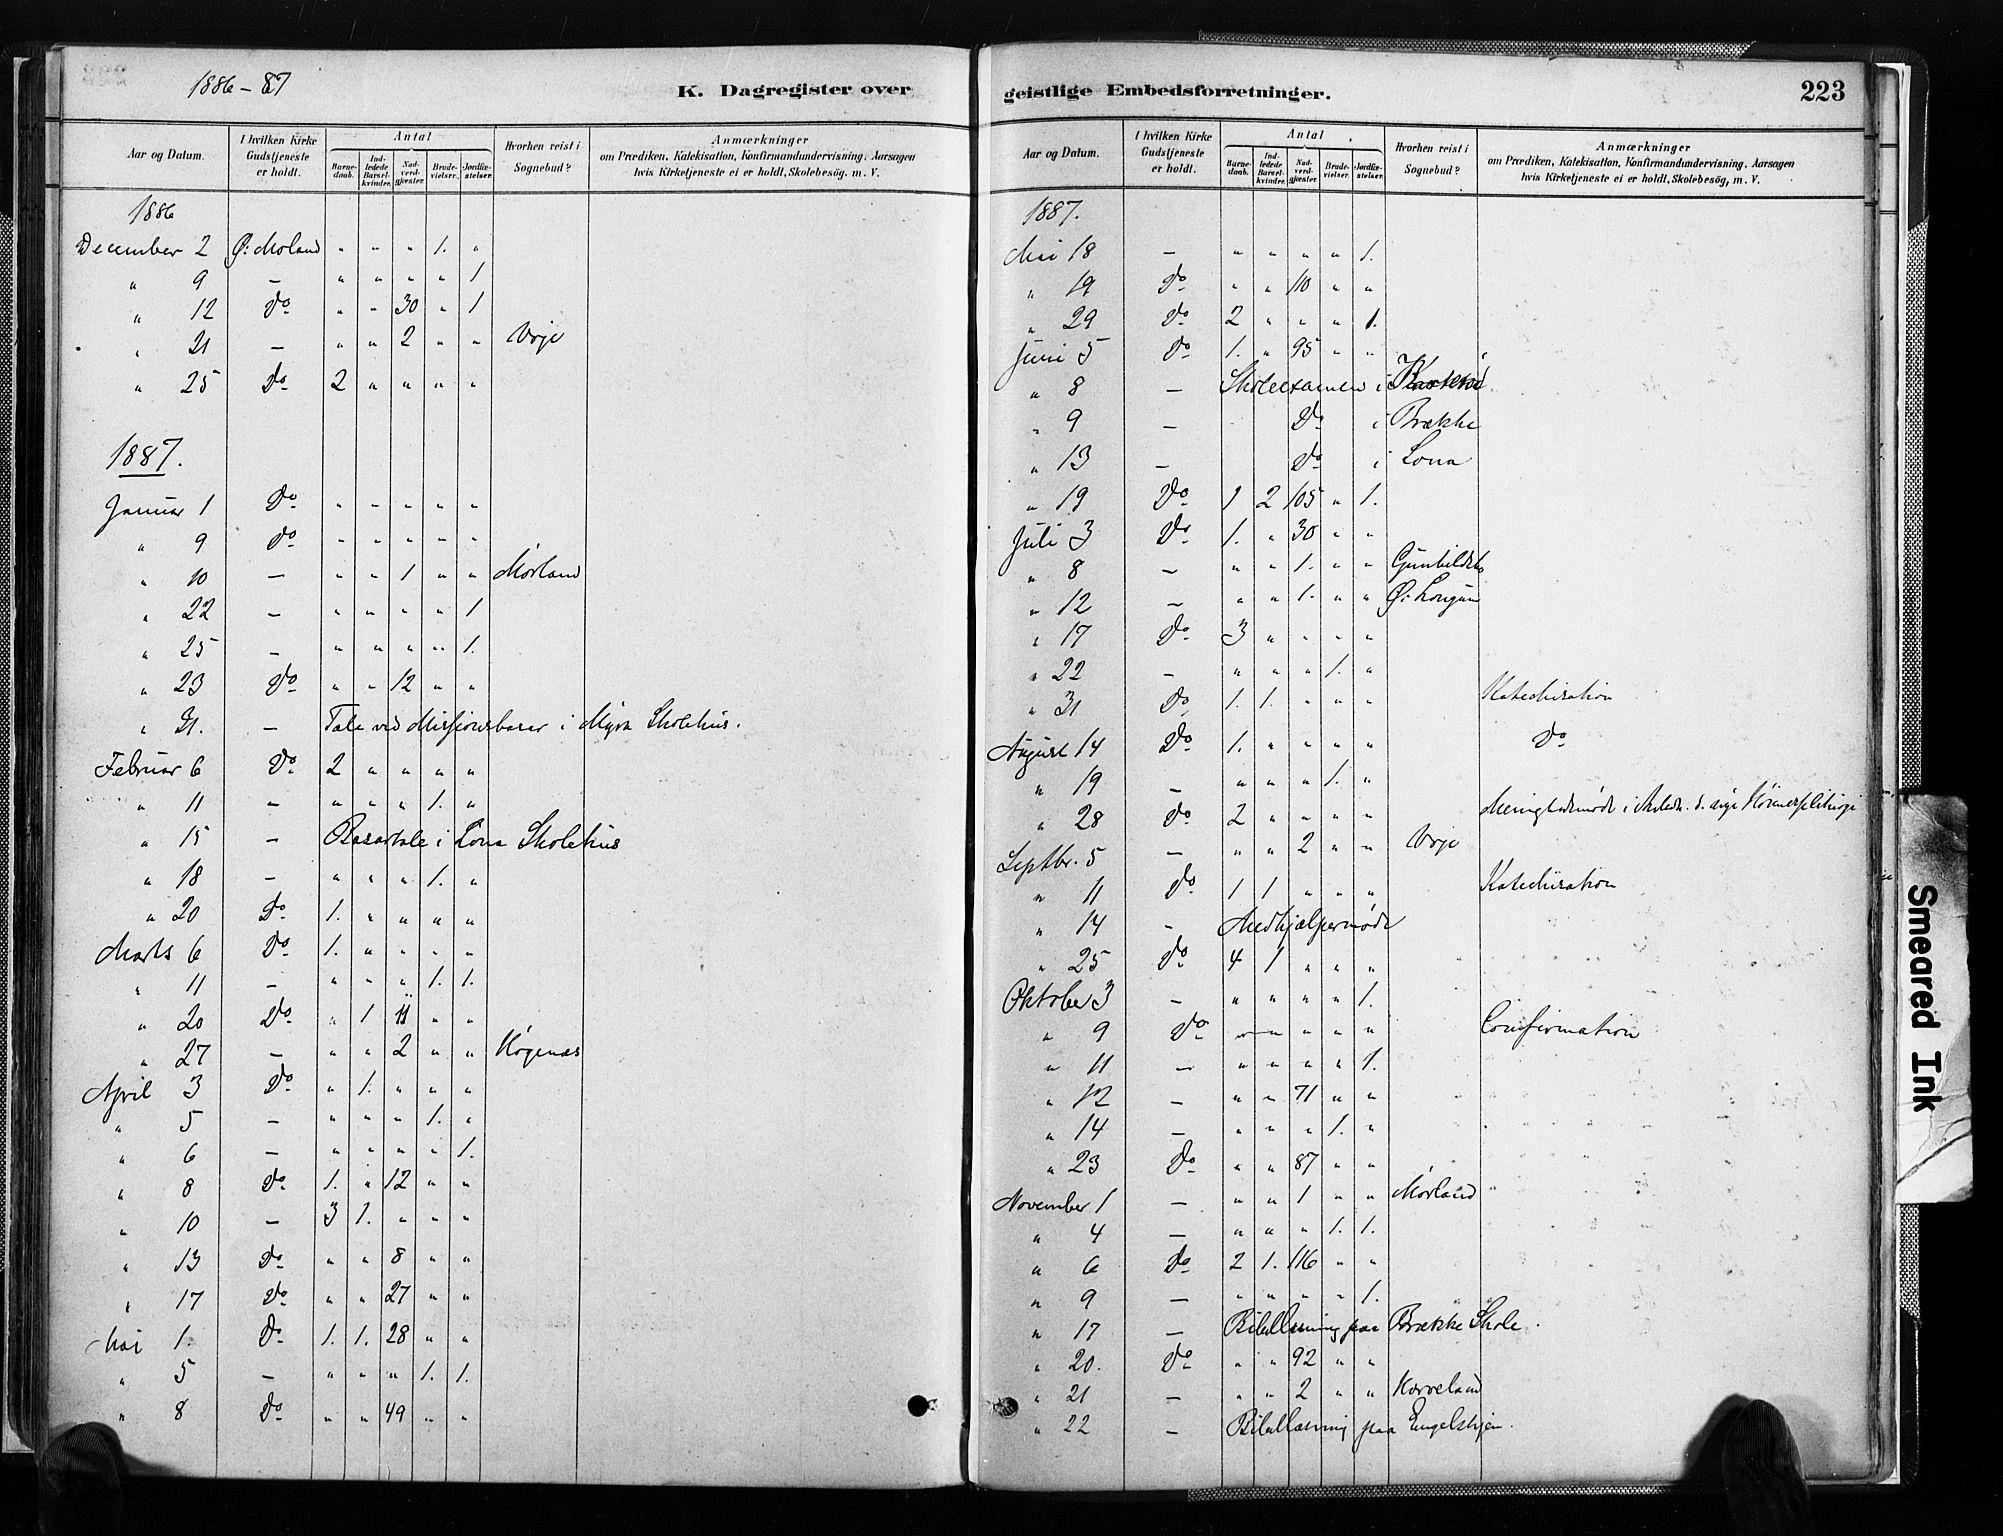 1886-87
K. Dagregister over
Aar og Datum.
I hvilken Kirke Gudstjeneste er holdt.
Antal
Barne-daab.
Ind-ledede Barsel-kvinder.
Nad-verd-gjæster.
Brude-vielser.
Jordfæ-stelser.
Hvorhen reist i Sognebud?
Anmærkninger
om Prædiken, Katekisation, Konfirmandundervisning, Aarsagen
hvis Kirketjeneste ei er holdt, Skolebesøg, m. V.
1886
December 2 Ø. Moland " " " 1. "
" 9 — " " " " 1
" 12 Do " " 30 " 1
" 21 — " " 2 " " Vrje
" 25 Do 2 " " " "
1887.
Januar 1 Do " " " " "
" 9 Do " " " " "
" 10 — " " 1 " " Mørland
" 22 — " " " " 1
" 25 — " " " " 1.
" 23 Do " " 12 " "
" 31. — Tale ved Missionsbasar i Myra Skolehus.
Februar 6 Do 2 " " " "
" 11 — " " " 1. "
" 15 — Basartale i Lona Skolehus
" 18 — " " " 1. "
" 20 Do 1. " " " "
Marts 6 Do 1. " " " "
" 11 — " " " 1. 1.
" 20 Do " 1 11 " "
" 27 — " " 2 " " Høgenæs
April 3 Do " 1. " " "
" 5 — " " " 1. "
" 6 — " " " " 1.
" 8 Do 1. " 12 " "
" 10 — 3 1. " " "
" 13 Do " " 8 " "
" 17 Do " " 27 " "
Mai 1. Do 1. 1. 28 " "
" 5 — " " " 1. 1.
" 8 Do " " 49 " "
geistlige Embedsforretninger.
223
Aar og Datum.
I hvilken Kirke Gudstjeneste er holdt.
Antal
Barne-daab.
Ind-ledede Barsel-kvinder.
Nad-verd-gjæster.
Brude-vielser.
Jordfæ-stelser.
Hvorhen reist i Sognebud?
Anmærkninger
om Prædiken, Katekisation, Konfirmandundervisning, Aarsagen
hvis Kirketjeneste ei er holdt, Skolebesøg, m. V.
1887.
Mai 18 — " " " " 1.
" 19 Do " " 110 " "
" 29 Do 2 " " " 1.
Juni 5 Do 1. " 95 " "
" 8 — Skoleexamen i
" 9 — Do i Brække
" 13 — Do i Lona
" 19 Do 1 2 105 " 1.
Juli 3 Do 1. " 30 " "
" 8 — " " 1. " "
" 12 — " " 1. " " Ø. Longum
" 17 Do 3 " " " "
" 22 — " " " 1. "
" 31 Do 1. 1. " " " Katechisation
August 14 Do 1. " " " " Do
" 19 — " " " 1. "
" 28 Do 2 " " " " Menighedsmøde i
Septbr. 5 — " " 2 " " Vrje
" 11 Do 1 1 " " " Katechisation
" 14 - Medhjælpermøde
" 25 Do 4 1 " " "
Oktober 3 — " " " " 1.
" 9 Do " " " " " Confirmation
" 11 — " " " " 1.
" 12 — " " 71 " "
" 14 — " " " 1. "
" 23 Do " " 87 " "
November 1 — " " 1 " " Mørland
" 4 — " " " 1. 1.
" 6 Do 2 1. 116 " "
" 9 — " " " " 1.
" 17 — Bibellæsning paa Brække Skole.
" 20. Do " " 92 " "
" 21 — " " 2 " " Korveland
" 22 — Bibellæsning paa Engelskjen.
Smeared Ink